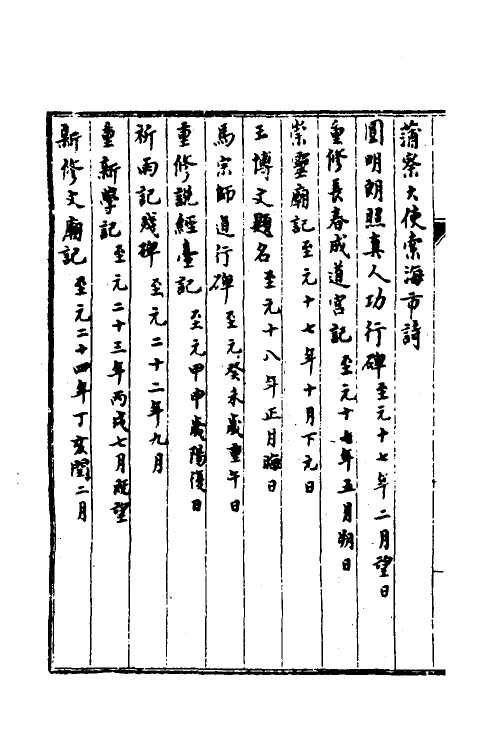 蒲察大使索海市詩
圓明朗照真人功行碑至元十七年二月望日
重修長春成道宮記至元十七年五月朔日
崇聖廟記至元十七年十月下元日
王博文題名至元十八年正月晦日
馬宗師道行碑至元癸未歲重午日
重修說經臺記至元甲申歲陽復日
祈雨記殘碑至元二十二年九月
重新學記至元二十三年丙戌七月既望
新修文廟記至元二十四年丁亥閏二月